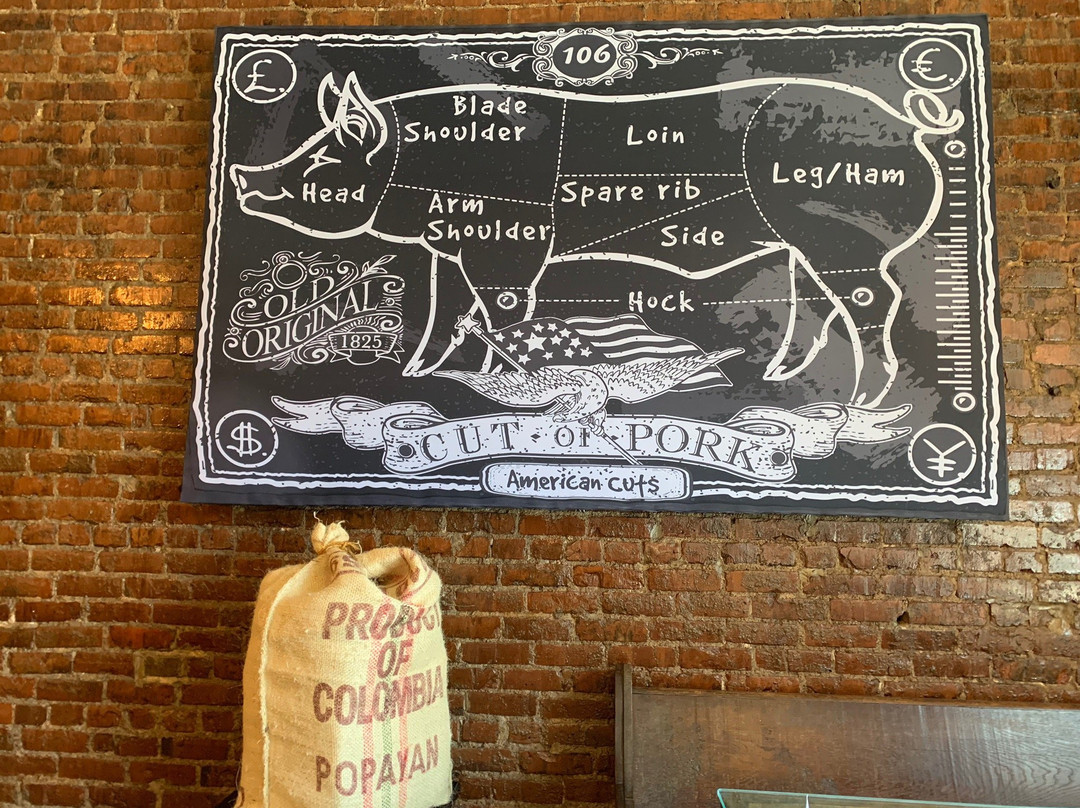 106
£.
€.
Blade
Shoulder
Loin
Leg/Ham
Head
Spare rib
Arm
Shoulder
Side
Hock
OLD
ORIGINAL
1825
$
¥
CUT • OF PORK
American Cuts
PRODUCT
OF
COLOMBIA
POPAYAN